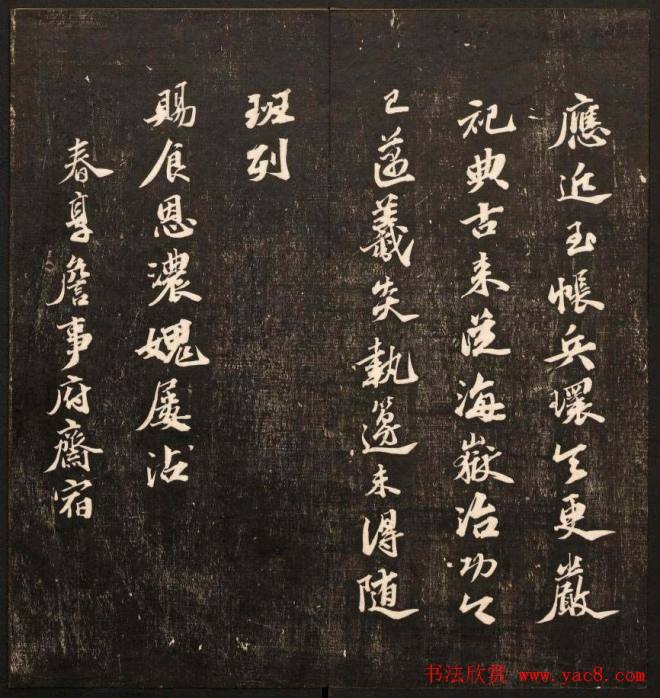 應近玉帳兵環令更嚴
祀典古来從海嶽治功今
已邁羲炎執籩未得随
班列
賜食恩濃媿屡沾
春享詹事府齋宿
书法欣赏 www.yac8.com